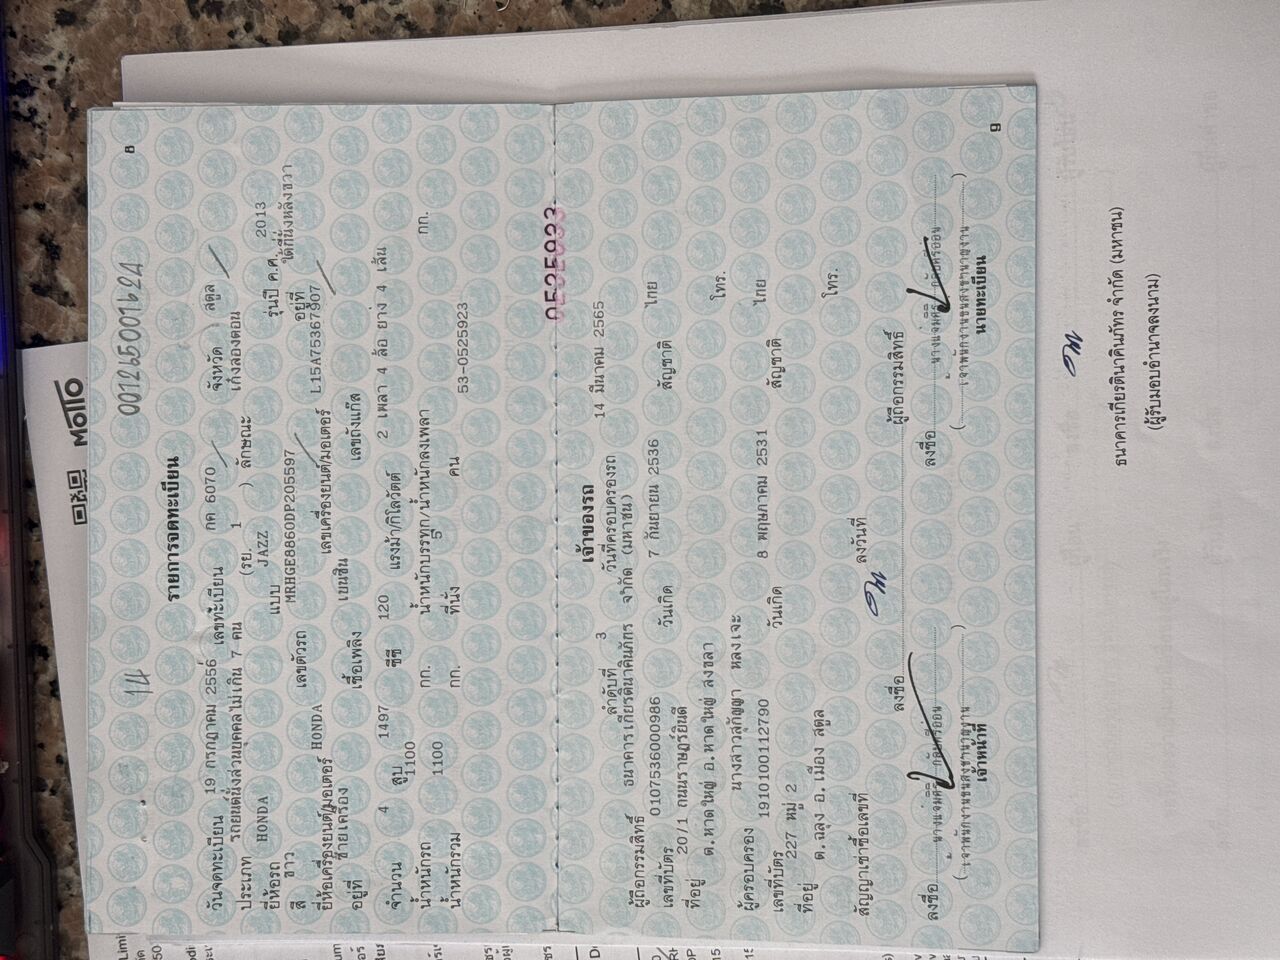 MOTTO
14 001265001624
8
รายการจดทะเบียน
วันจดทะเบียน 19 กรกฎาคม 2556 เลขทะเบียน กค 6070 จังหวัด สตูล
ประเภท รถยนต์นั่งส่วนบุคคลไม่เกิน 7 คน (รย. 1 ) ลักษณะ เก๋งสองตอน
ยี่ห้อรถ HONDA แบบ JAZZ รุ่นปี ค.ศ. 2013
สี ขาว เลขตัวรถ MRHGE8860DP205597 อยู่ที่ ใต้ที่นั่งหลังขวา
ยี่ห้อเครื่องยนต์/มอเตอร์ HONDA เลขเครื่องยนต์/มอเตอร์ L15A75367907
อยู่ที่ ซ้ายเครื่อง เชื้อเพลิง เบนซิน เลขถังแก๊ส
จำนวน 4 สูบ 1497 ซีซี 120 แรงม้า/กิโลวัตต์ 2 เพลา 4 ล้อ ยาง 4 เส้น
น้ำหนักรถ 1100 กก. น้ำหนักบรรทุก/น้ำหนักลงเพลา กก.
น้ำหนักรวม 1100 กก. ที่นั่ง 5 คน 53-0525923
0525923
เจ้าของรถ
ลำดับที่ 3 วันที่ครอบครองรถ 14 มีนาคม 2565
ผู้ถือกรรมสิทธิ์ ธนาคารเกียรตินาคินภัทร จำกัด (มหาชน)
เลขที่บัตร 0107536000986 วันเกิด 7 กันยายน 2536 สัญชาติ ไทย
ที่อยู่ 20/1 ถนนราษฎร์ยินดี โทร.
ต.หาดใหญ่ อ.หาดใหญ่ สงขลา
ผู้ครอบครอง นางสาวสุกัญญา หลงเจะ
เลขที่บัตร 1910100112790 วันเกิด 8 พฤษภาคม 2531 สัญชาติ ไทย
ที่อยู่ 227 หมู่ 2 โทร.
ต.ฉลุง อ.เมือง สตูล
สัญญาเช่าซื้อเลขที่ ลงวันที่
ลงชื่อ ผู้ถือกรรมสิทธิ์
ลงชื่อ ลงชื่อ
(เจ้าพนักงานขนส่งชำนาญงาน) (เจ้าพนักงานขนส่งชำนาญงาน)
เจ้าหน้าที่ นายทะเบียน
9
ธนาคารเกียรตินาคินภัทร จำกัด (มหาชน)
(ผู้รับมอบอำนาจลงนาม)